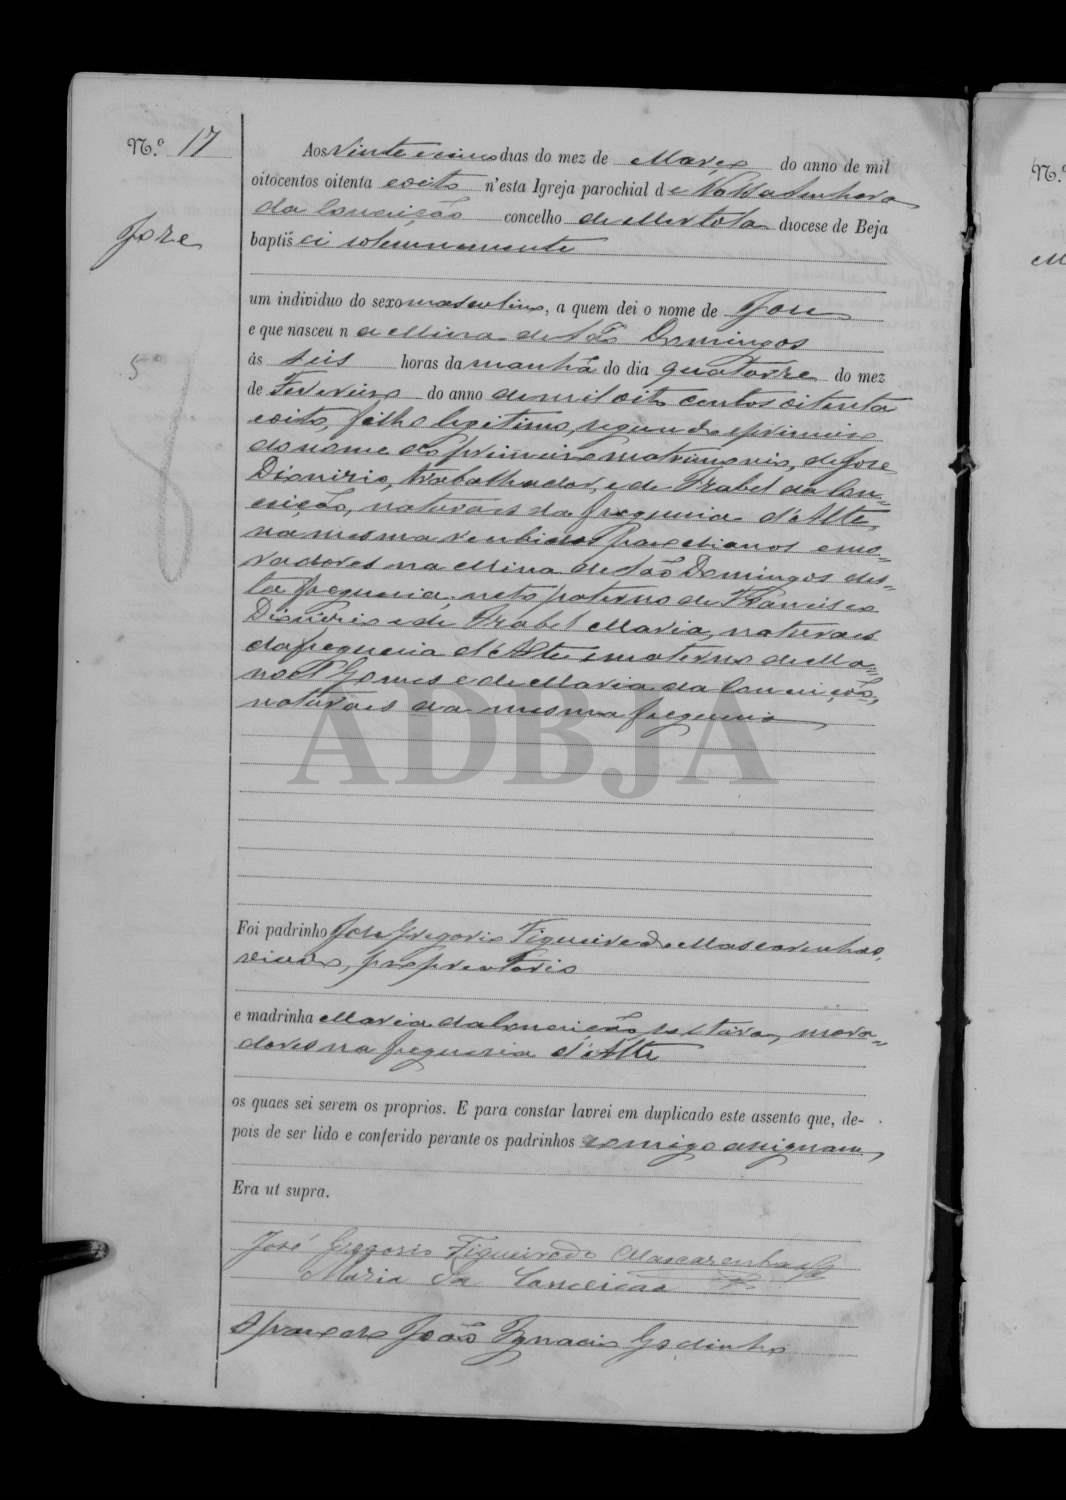 N.º 17
Aos vinte e cinco dias do mez de Março do anno de mil
oitocentos oitenta e oito n'esta Igreja parochial de Nossa Senhora
da Conceição concelho de Mertola diocese de Beja
baptisei solemnemente
José
um individuo do sexo masculino, a quem dei o nome de José
e que nasceu na Mina de São Domingos
ás seis horas da manhã do dia quatorze do mez
de Fevereiro do anno de mil oito centos oitenta
e oito, filho legitimo, segundo e primeiro
do nome do primeiro matrimonio, de José
Dionirio, trabalhador, e de Izabel da Con=
ceição, naturaes da freguezia d'Alte,
na mesma recebidos parochianos e mo=
radores na Mina de São Domingos des=
ta freguezia, neto paterno de Francisco
Dionirio e de Izabel Maria, naturaes
da freguezia d'Alte e materno de Ma=
noel Gomes e de Maria da Conceição,
naturaes da mesma freguezia
5º
ADBJA
Foi padrinho José Gregorio Figueiredo Mascarenhas,
viuvo, proprietario
e madrinha Maria da Conceição, solteira, mora=
dores na freguezia d'Alte
os quaes sei serem os proprios. E para constar lavrei em duplicado este assento que, de-
pois de ser lido e conferido perante os padrinhos comigo assignam,
Era ut supra.
José Gregorio Figueiredo Mascarenhas
Maria da Conceição
O parocho João Ignacio Godinho
N.º
M